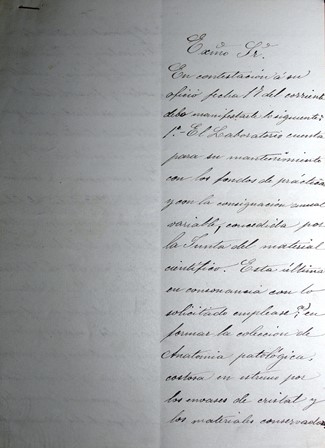 Exmo Sr.
En contestación á su
oficio fecha 1º del corriente
debo manifestarle lo siguiente:
1º.- El Laboratorio cuenta
para su mantenimiento
con los fondos de prácticas
y con la consignación anual
variable, concedida por
la Junta del material
científico. Esta última
en consonancia con lo
solicitado empléase en
formar la colección de
Anatomia patológica,
costosa en extremo por
los envases de cristal y
los materiales conservadores